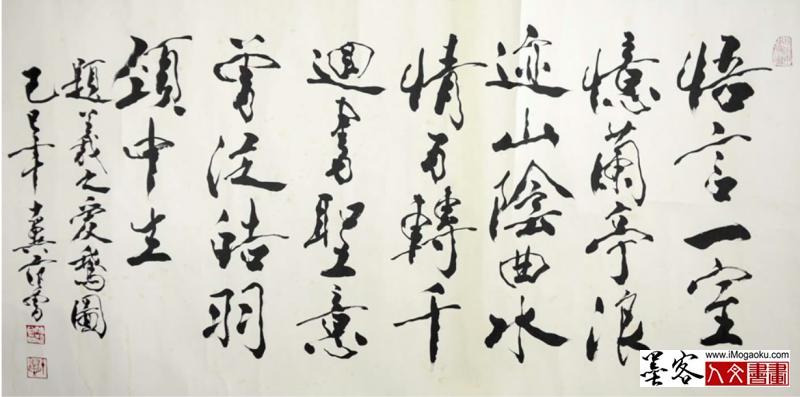 悟言一室
憶蘭亭浪
迹山陰曲水
情百轉千
迴書聖意
曾從皓羽
頸中生
題羲之愛鵝圖
己巳年 十翼范曾
墨客
www.iMogaoku.com
人文書畫